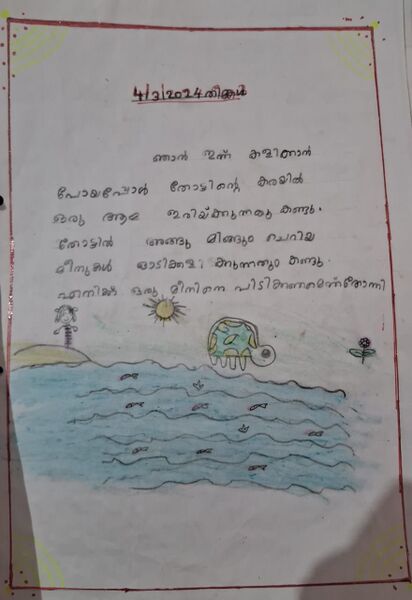 4/3/2024 തിങ്കൾ
ഞാൻ ഇന്ന് കളിക്കാൻ
പോയപ്പോൾ തോട്ടിന്റെ കരയിൽ
ഒരു ആമ ഇരിയ്ക്കുന്നതു കണ്ടു.
തോട്ടിൽ അങ്ങു മിങ്ങും ചെറിയ
മീനുകൾ ഓടിക്കളിക്കുന്നതും കണ്ടു.
എനിക്ക് ഒരു മീനിനെ പിടിക്കണമെന്ന്തോന്നി